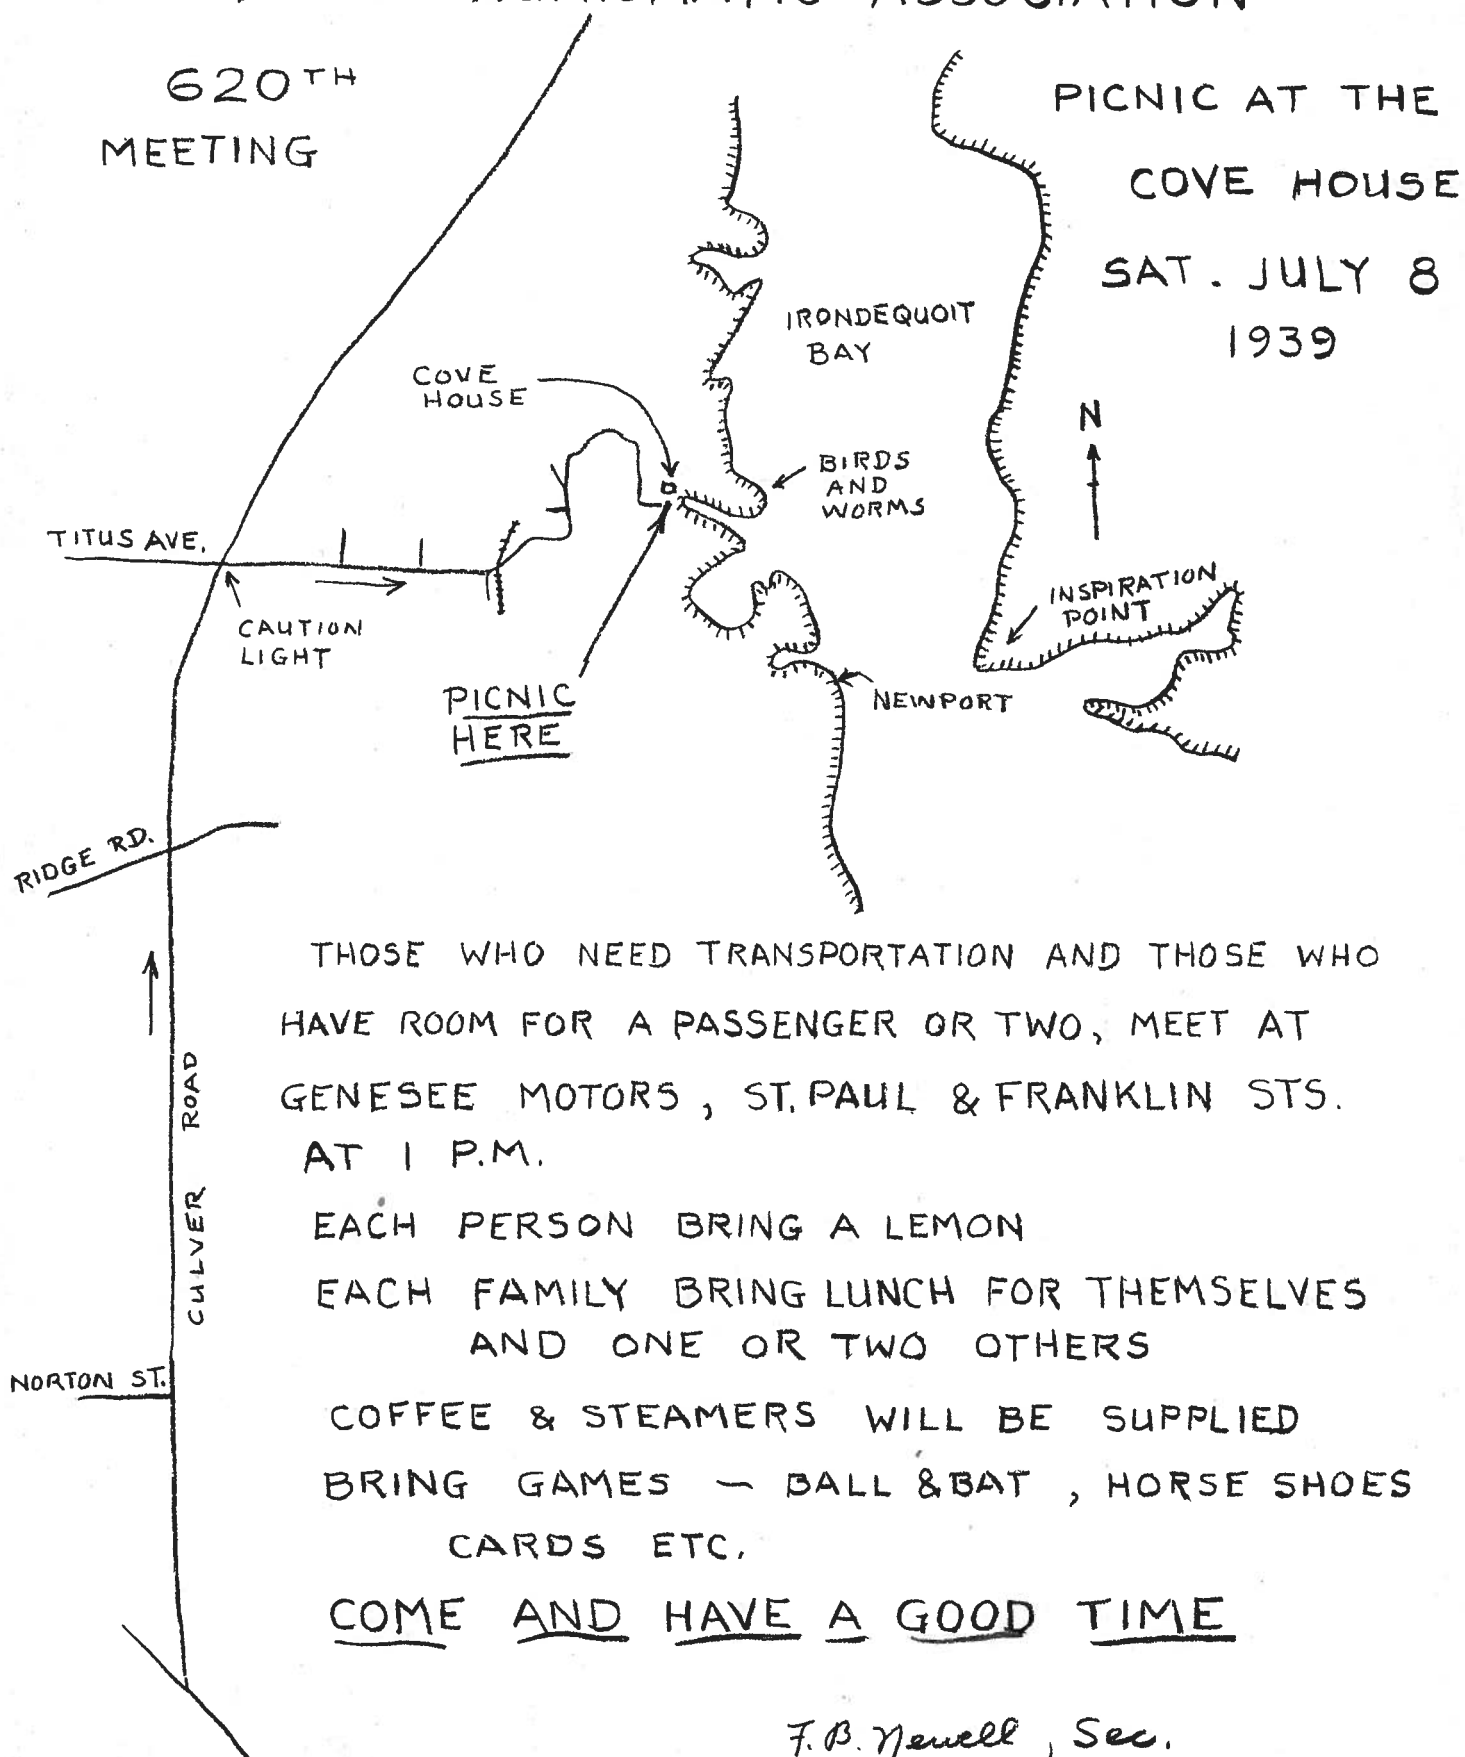 NUMISMATIC ASSOCIATION
620TH
MEETING
PICNIC AT THE
COVE HOUSE
SAT. JULY 8
1939
IRONDEQUOIT
BAY
COVE
HOUSE
N
BIRDS
AND
WORMS
TITUS AVE.
CAUTION
LIGHT
INSPIRATION
POINT
PICNIC
HERE
NEWPORT
RIDGE RD.
THOSE WHO NEED TRANSPORTATION AND THOSE WHO
HAVE ROOM FOR A PASSENGER OR TWO, MEET AT
GENESEE MOTORS, ST. PAUL & FRANKLIN STS.
AT 1 P.M.
CULVER ROAD
EACH PERSON BRING A LEMON
EACH FAMILY BRING LUNCH FOR THEMSELVES
AND ONE OR TWO OTHERS
NORTON ST.
COFFEE & STEAMERS WILL BE SUPPLIED
BRING GAMES – BALL & BAT, HORSE SHOES
CARDS ETC.
COME AND HAVE A GOOD TIME
F. B. Newell, Sec.